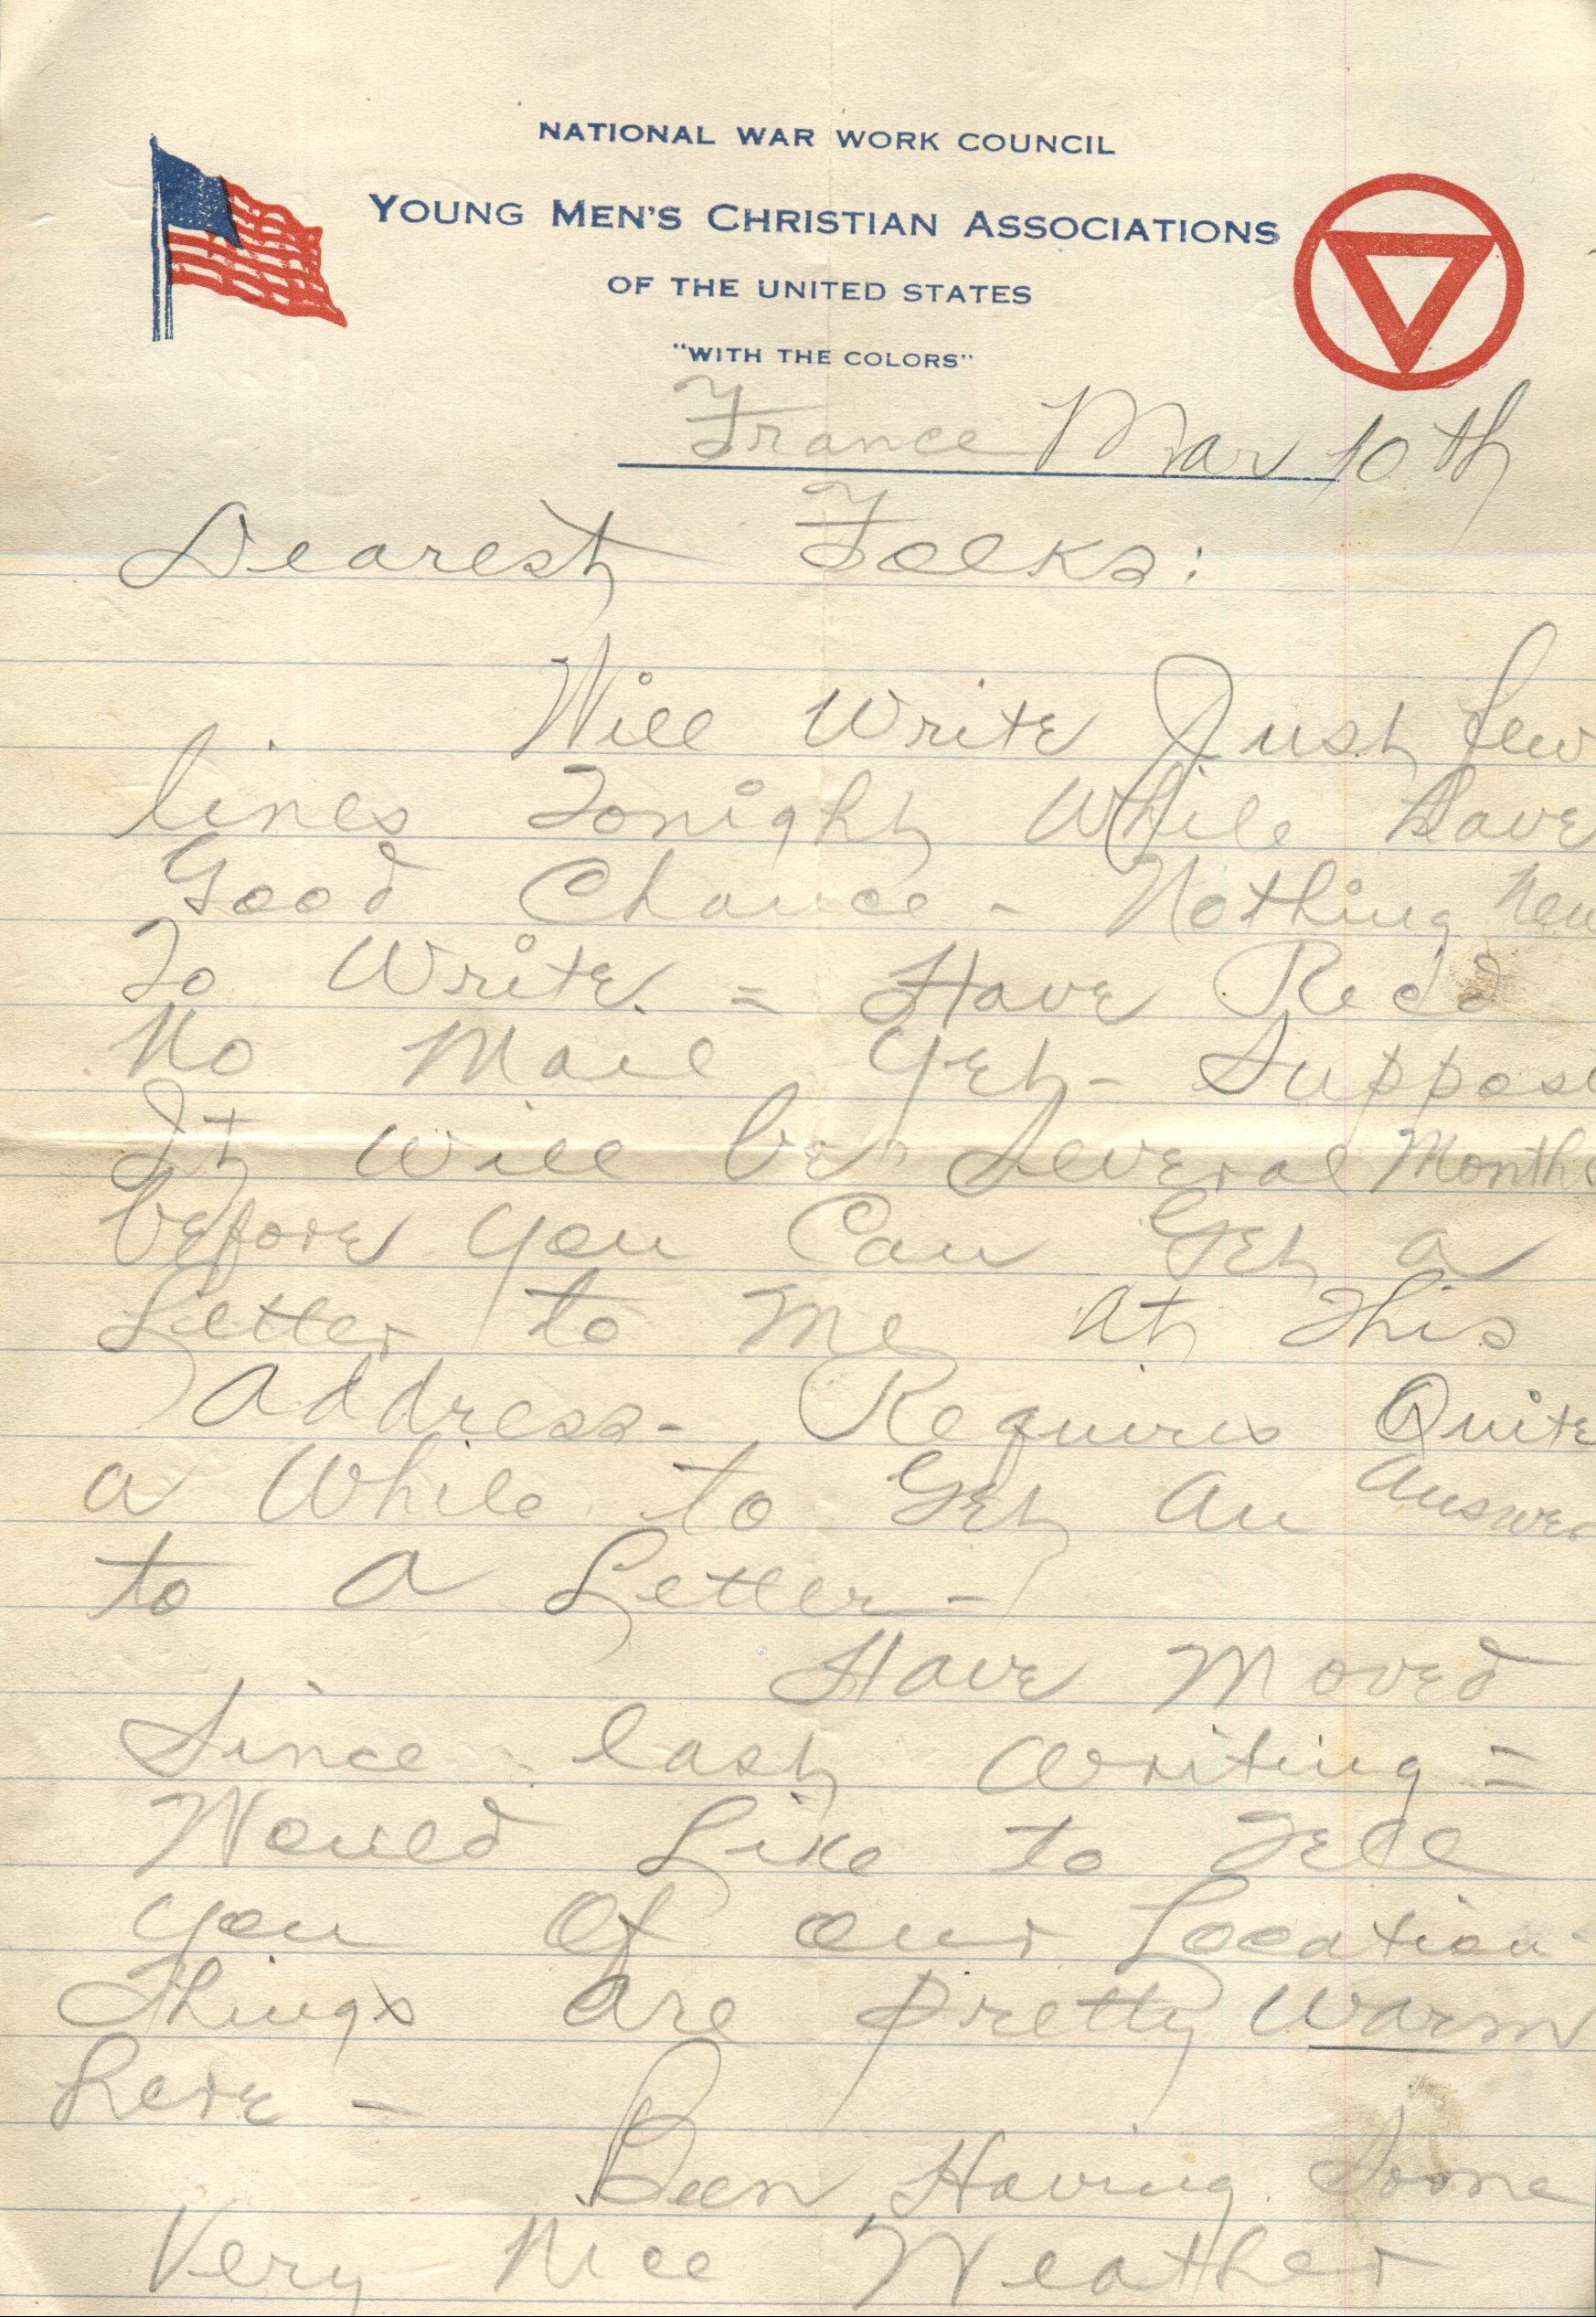 NATIONAL WAR WORK COUNCIL
YOUNG MEN'S CHRISTIAN ASSOCIATIONS
OF THE UNITED STATES
"WITH THE COLORS"
France Mar 10th
Dearest Folks:
Will Write Just few
lines Tonight While have
Good Chance - Nothing New
To Write. = Have Recd
No Mail Yet - Suppose
It Will be Several Months
before you Can Get a
Letter to Me at This
address - Requires Quite
a While to Get An Answer
to A Letter -
Have Moved
Since last Writing =
Would Like to Tell
you Of our Location -
Things are pretty Warm
here -
Been Having Some
Very Nice Weather